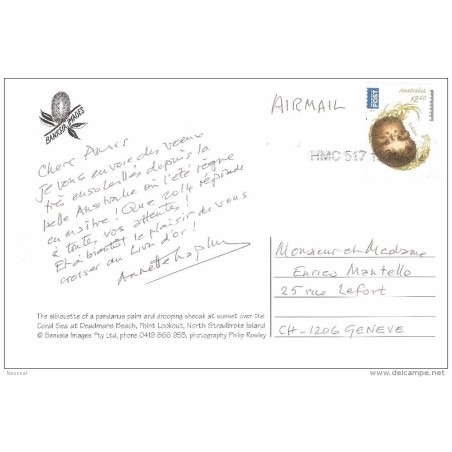 BANKSIA IMAGES
AIRMAIL
POST
Australia
$2.60
HMC 517
Chers Amis
Je vous envoie des vœux
très ensoleillés depuis la
belle Australie où l'été règne
en maître! Que 2014 réponde
à toutes vos attentes!
Et à bientôt le plaisir de vous
croiser au Lion d'or!
Monsieur et Madame
Enrico Mantello
25 rue Lefort
CH-1206 GENEVE
The silhouette of a pandanus palm and drooping sheoak at sunset over the
Coral Sea at Deadmans Beach, Point Lookout, North Stradbroke Island
© Banksia Images Pty Ltd, phone 0419 666 955, photography Philip Rowley
Neussaf
www.delcampe.net